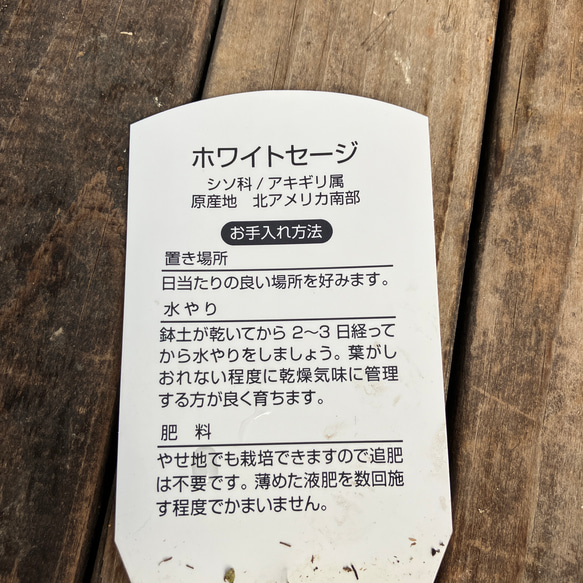 ホワイトセージ
シソ科 / アキギリ属
原産地　北アメリカ南部
お手入れ方法
置き場所
日当たりの良い場所を好みます。
水やり
鉢土が乾いてから 2〜3 日経って
から水やりをしましょう。葉がし
おれない程度に乾燥気味に管理
する方が良く育ちます。
肥　料
やせ地でも栽培できますので追肥
は不要です。薄めた液肥を数回施
す程度でかまいません。